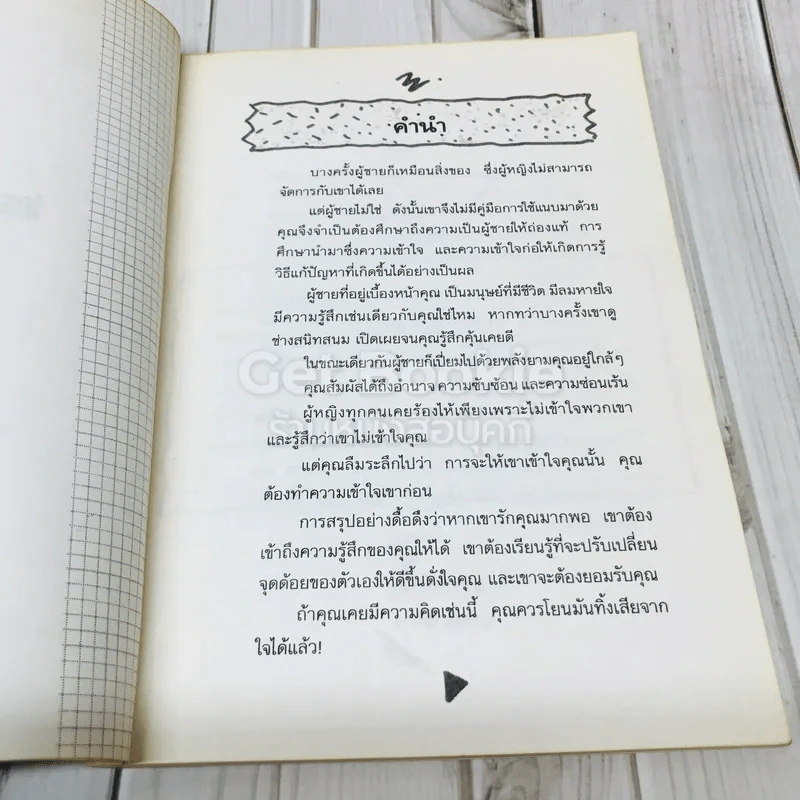 คำนำ
บางครั้งผู้ชายก็เหมือนสิ่งของ ซึ่งผู้หญิงไม่สามารถ
จัดการกับเขาได้เลย
แต่ผู้ชายไม่ใช่ ดังนั้นเขาจึงไม่มีคู่มือการใช้แนบมาด้วย
คุณจึงจำเป็นต้องศึกษาถึงความเป็นผู้ชายให้ถ่องแท้ การ
ศึกษานำมาซึ่งความเข้าใจ และความเข้าใจก่อให้เกิดการรู้
วิธีแก้ปัญหาที่เกิดขึ้นได้อย่างเป็นผล
ผู้ชายที่อยู่เบื้องหน้าคุณ เป็นมนุษย์ที่มีชีวิต มีลมหายใจ
มีความรู้สึกเช่นเดียวกับคุณใช่ไหม หากทว่าบางครั้งเขาดู
ช่างสนิทสนม เปิดเผยจนคุณรู้สึกคุ้นเคยดี
ในขณะเดียวกันผู้ชายก็เปี่ยมไปด้วยพลังยามคุณอยู่ใกล้ๆ
คุณสัมผัสได้ถึงอำนาจ ความซับซ้อน และความซ่อนเร้น
ผู้หญิงทุกคนเคยร้องไห้เพียงเพราะไม่เข้าใจพวกเขา
และรู้สึกว่าเขาไม่เข้าใจคุณ
แต่คุณลืมระลึกไปว่า การจะให้เขาเข้าใจคุณนั้น คุณ
ต้องทำความเข้าใจเขาก่อน
การสรุปอย่างดื้อดึงว่าหากเขารักคุณมากพอ เขาต้อง
เข้าถึงความรู้สึกของคุณให้ได้ เขาต้องเรียนรู้ที่จะปรับเปลี่ยน
จุดด้อยของตัวเองให้ดีขึ้นดั่งใจคุณ และเขาจะต้องยอมรับคุณ
ถ้าคุณเคยมีความคิดเช่นนี้ คุณควรโยนมันทิ้งเสียจาก
ใจได้แล้ว!